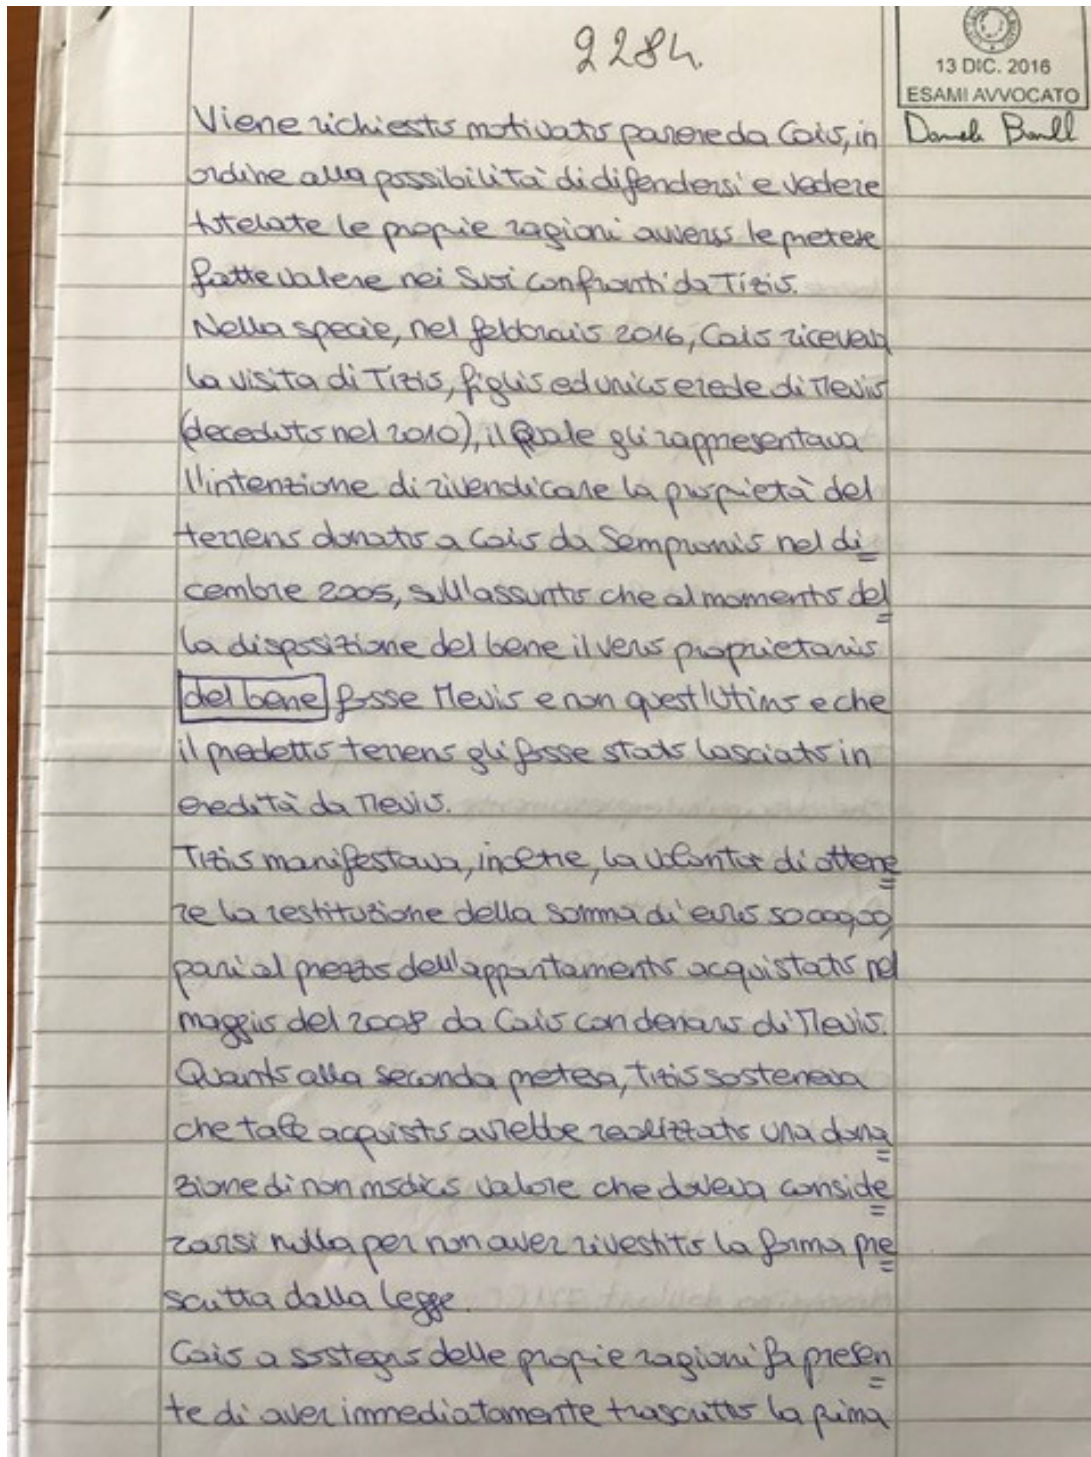 2284.
13 DIC. 2016
ESAMI AVVOCATO
Viene richiesto motivato parere da Caio, in
ordine alla possibilità di difendersi e vedere
tutelate le proprie ragioni avverso le pretese
fatte valere nei suoi confronti da Tizio.
Nella specie, nel febbraio 2016, Caio riceveva
la visita di Tizio, figlio ed unico erede di Mevio
(deceduto nel 2010), il quale gli rappresentava
l'intenzione di rivendicare la proprietà del
terreno donato a Caio da Sempronio nel di=
cembre 2005, sull'assunto che al momento del=
la disposizione del bene il vero proprietario
del bene fosse Mevio e non quest'ultimo e che
il predetto terreno gli fosse stato lasciato in
eredità da Mevio.
Tizio manifestava, inoltre, la volontà di ottene=
re la restituzione della somma di euro 50000,00,
pari al prezzo dell'appartamento acquistato nel
maggio del 2008 da Caio con denaro di Mevio.
Quanto alla seconda pretesa, Tizio sosteneva
che tale acquisto avrebbe realizzato una dona=
zione di non modico valore che doveva conside=
rarsi nulla per non aver rivestito la forma pre=
scritta dalla legge.
Caio a sostegno delle proprie ragioni fa presen=
te di aver immediatamente trascritto la prima